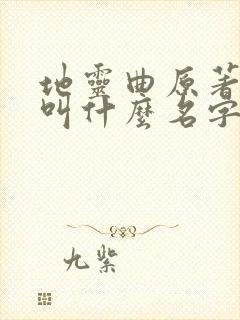 地靈曲原著
叫什麼名字
九紫